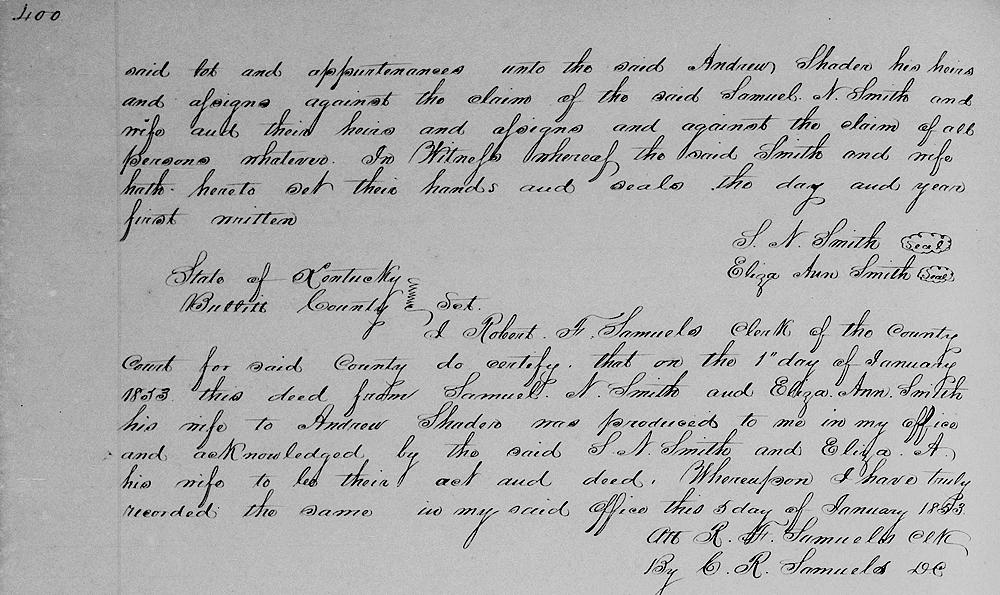 400
said lot and appurtenances unto the said Andrew Shader his heirs
and assigns against the claim of the said Samuel. N. Smith and
wife and their heirs and assigns and against the claim of all
persons whatever. In Witness whereof the said Smith and wife
hath hereto set their hands and seals the day and year
first written
S. N. Smith (Seal)
Eliza Ann Smith (Seal)
State of Kentucky
Bullitt County Sct.
I Robert. F. Samuels Clerk of the County
Court for said County do certify. that on the 1" day of January
1853 this deed from Samuel. N. Smith and Eliza. Ann. Smith
his wife to Andrew Shader was produced to me in my office
and acknowledged by the said S. N. Smith and Eliza. A
his wife to be their act and deed. Whereupon I have truly
recorded the same in my said office this 5 day of January 1853
Att R. F. Samuels Clk
By C. R. Samuels DC